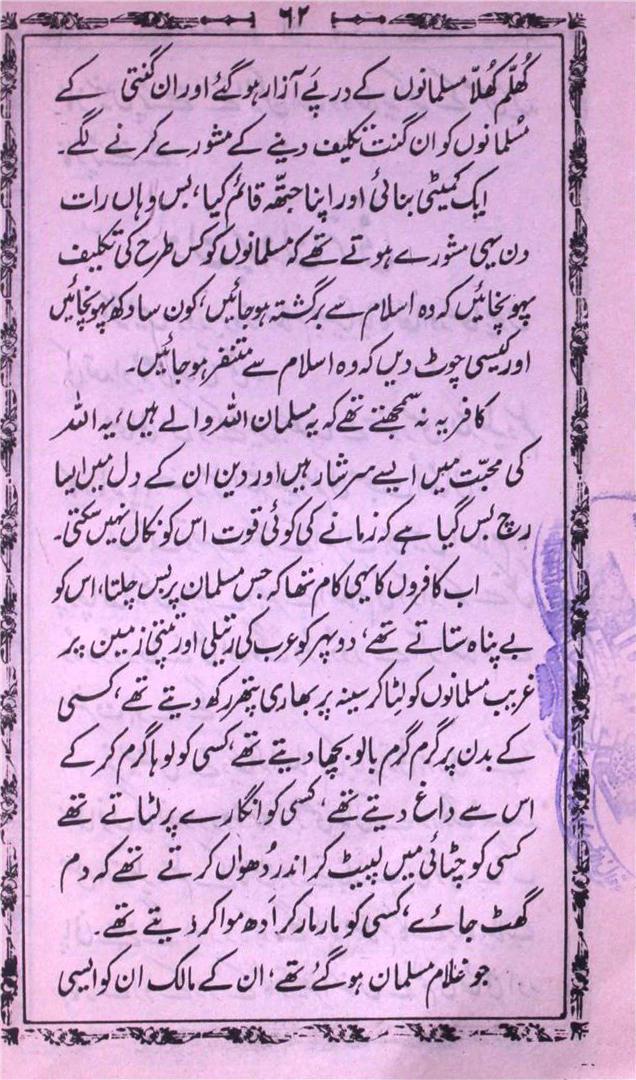 ۶۲
کُھلّم کُھلّا مسلمانوں کے درپئے آزار ہوگئے اور ان گنتی کے
مسلمانوں کو ان گنت تکلیف دینے کے مشورے کرنے لگے۔
ایک کمیٹی بنائی اور اپنا جتّھہ قائم کیا، بس وہاں رات
دن یہی مشورے ہوتے تھے کہ مسلمانوں کو کس طرح کی تکلیف
پہونچائیں کہ وہ اسلام سے برگشتہ ہوجائیں، کون سا دکھ پہونچائیں
اور کیسی چوٹ دیں کہ وہ اسلام سے متنفر ہوجائیں۔
کافر یہ نہ سمجھتے تھے کہ یہ مسلمان اللہ والے ہیں، یہ اللہ
کی محبّت میں ایسے سرشار ہیں اور دین ان کے دل میں ایسا
رچ بس گیا ہے کہ زمانے کی کوئی قوت اس کو نکال نہیں سکتی۔
اب کافروں کا یہی کام تھا کہ جس مسلمان پر بس چلتا، اس کو
بے پناہ ستاتے تھے، دوپہر کو عرب کی رتیلی اور تپتی زمین پر
غریب مسلمانوں کو لٹا کر سینہ پر بھاری پتھر رکھ دیتے تھے، کسی
کے بدن پر گرم گرم بالو بچھا دیتے تھے، کسی کو لوہا گرم کر کے
اس سے داغ دیتے تھے، کسی کو انگارے پر لٹاتے تھے
کسی کو چٹائی میں لپیٹ کر اندر دُھواں کرتے تھے کہ دم
گھٹ جائے، کسی کو مار مار کر اَدھ موا کر دیتے تھے۔
جو غلام مسلمان ہوگئے تھے، ان کے مالک ان کو ایسی